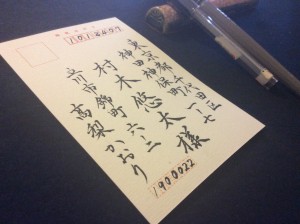 東京都千代田区
神田神保町
村木悠太様
立川市錦町六ー三
高梨かおり
1900022